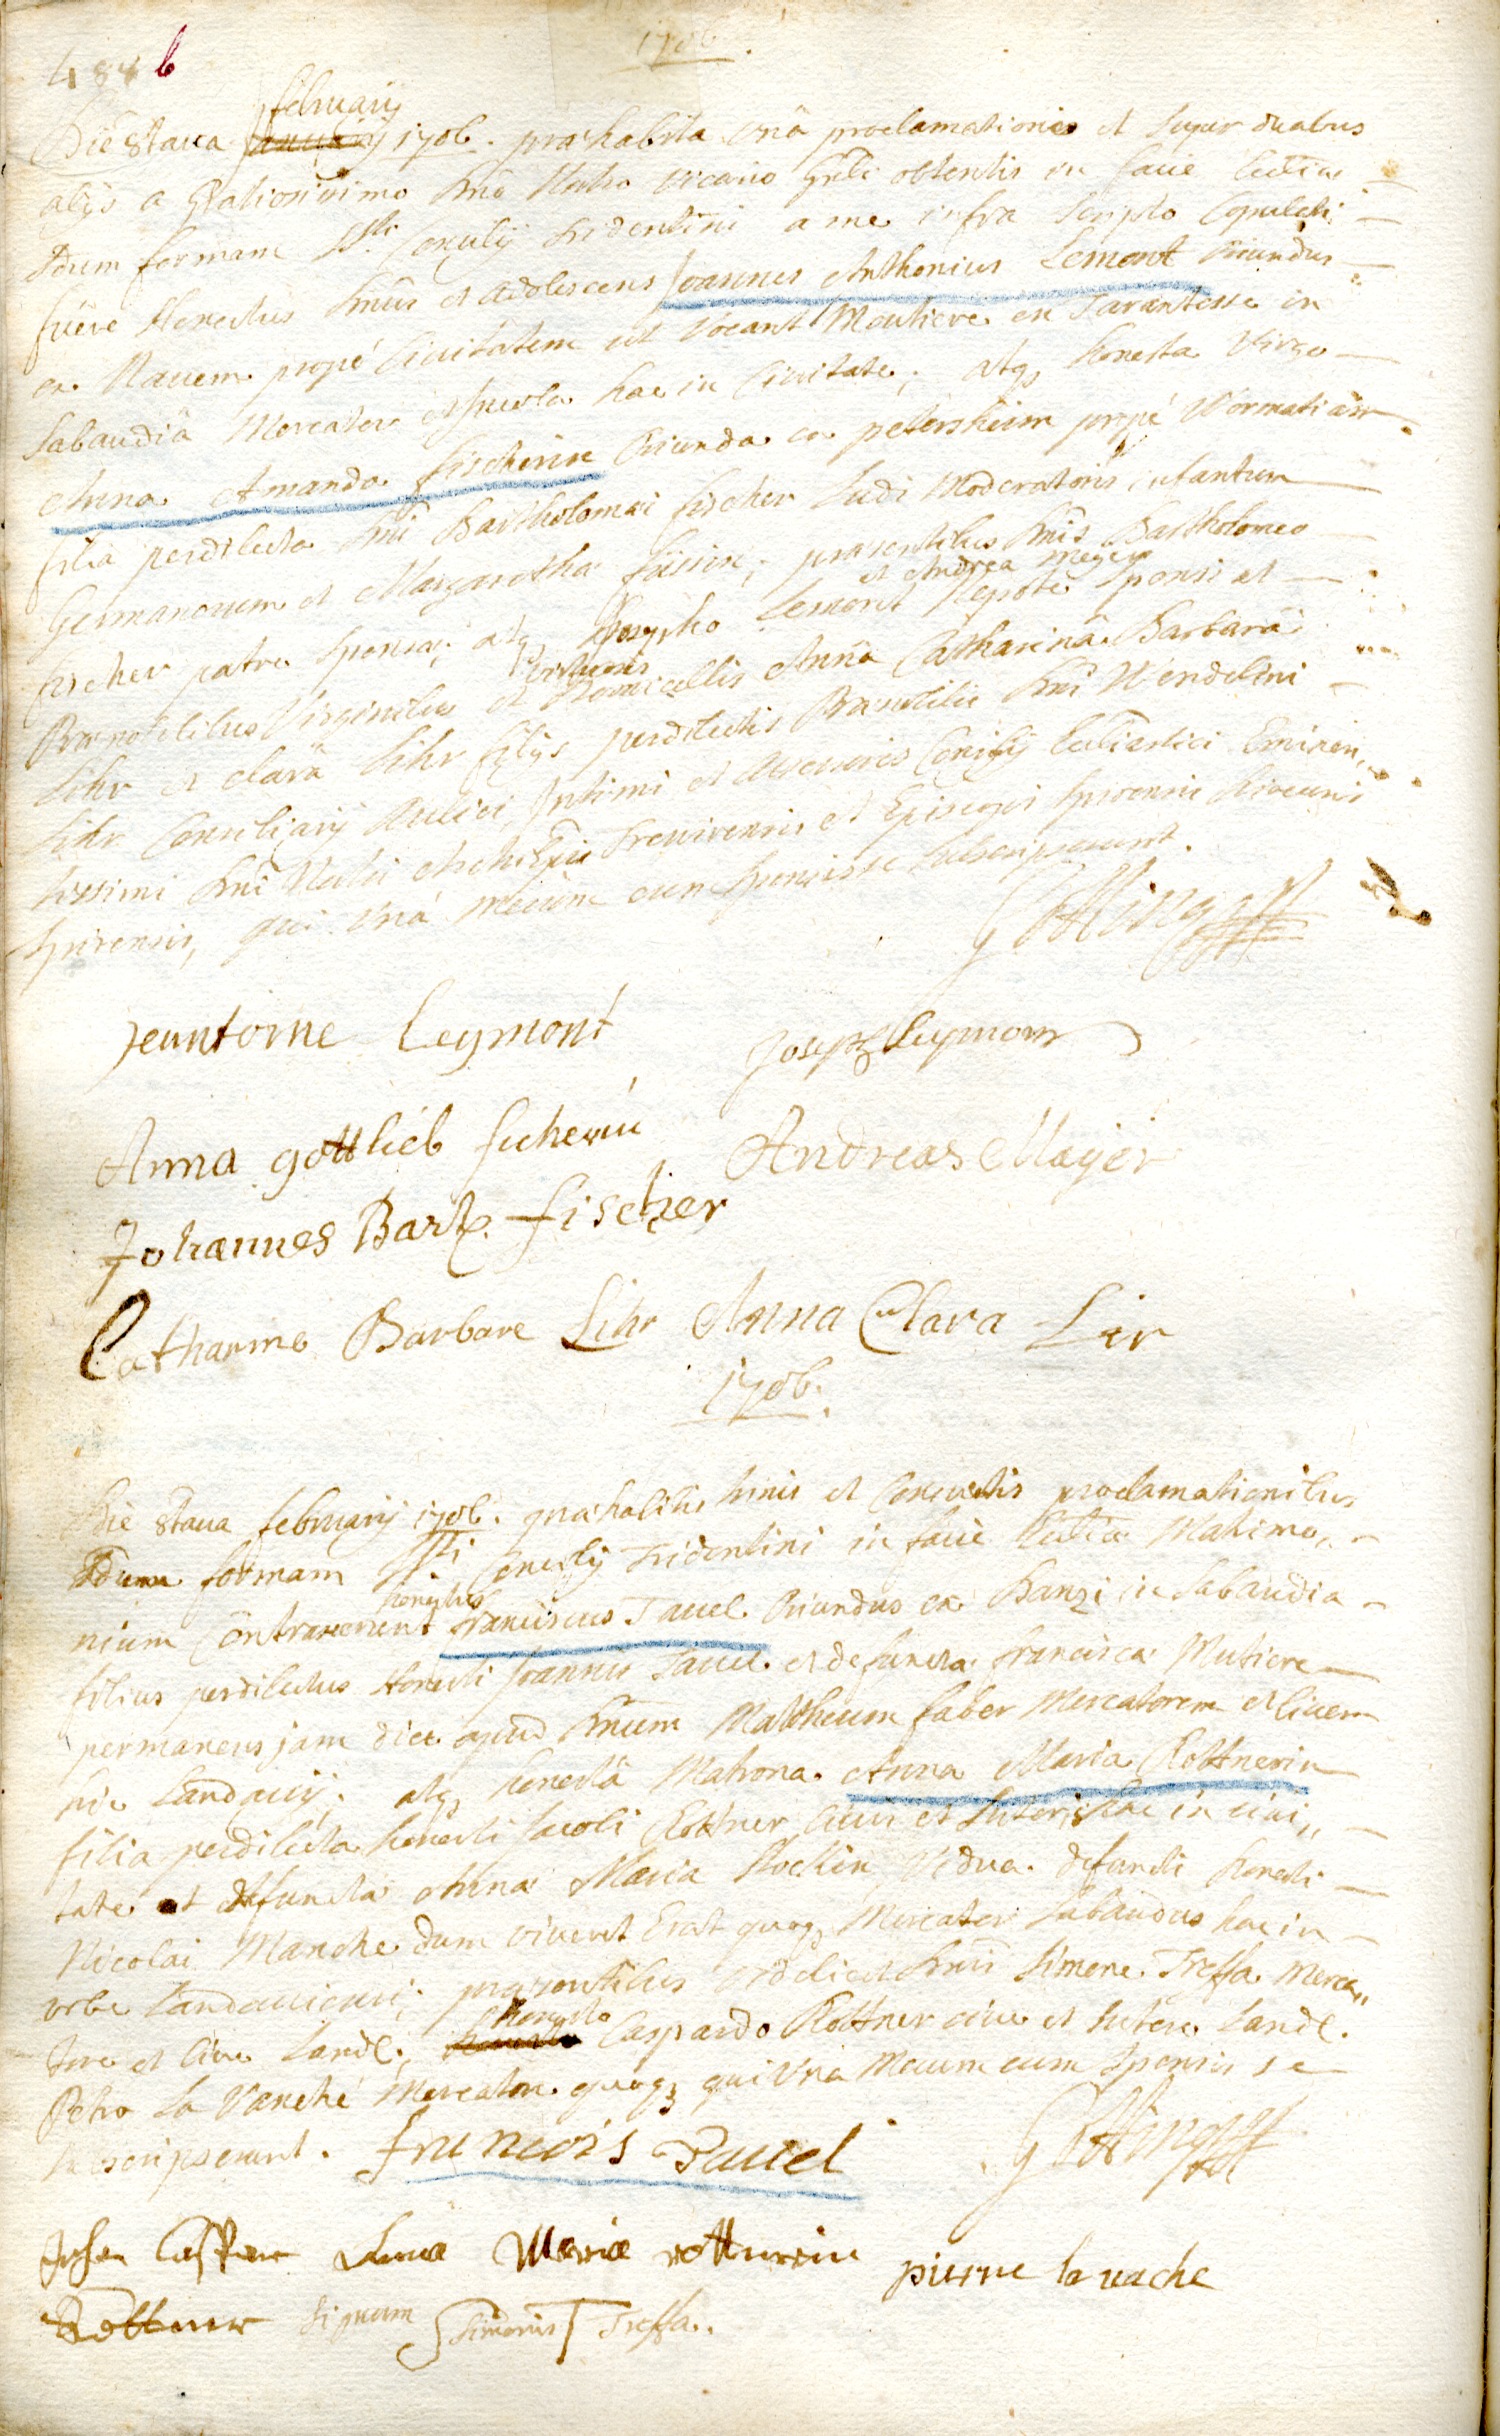 484 b
1706.
february
Die 8tava 1706. praehabita unâ proclamatione et super duabus
alijs a Gratiosissimo Dno Dno Vicario Gnli obtentis in facie Ecclia
Sdum formam Sti Concilij Tridentini a me infra scripto Copulati
fuere Honestus Dnus et adolescens Joannes Anthonius Lemont oriundus
ex Navem propé Civitatem ut vocant Moutiere en Tarantesse in
Sabaudiâ Mercator et Incola hac in Civitate; atq honesta Virgo
Anna Amanda fischerin oriunda ex petersheim propé Wormatiam
filia perdilecta Dni Bartholomaei fischer ludi Moderatoris infantum
Germanorum et Margaretha ; praesentibus Dnis Bartholomeo
et Andrea meyer
fischer patre sponsae; atq Josepho Lemont Nepote sponsi et
virtuosis
Praenobilibus Virginibus et Domicellis Annâ Catharinâ Barbarâ
Lihr et Clarâ Lihr filijs perdilectis Praenobilis Dni Wendelini
Lihr Consiliarij Aulici, Intimi et Assessoris Consilij Ecclesiastici Eminen,,
tissimi Dni Nostri Archi Epi Trevirensis et Episcopi Spirensis
Spirensis, qui unâ mecum cum sponsis se subscripserunt.
jeantoine Leymont
Joseph leymont
Anna gottlieb fischerin
Andreas Mayer
Johannes Bart. fischer
Catharine Barbare Lihr Anna Clara Lir
1706.
Die 8tava february 1706. praehabitis trinis et Consuetis proclamationibus
Sdum formam Sti Concilij Tridentini in facie Ecclia Matrimo,,
honestus
nium Contraxerunt Franciscus Tavel oriundus ex Banzi in Sabaudia
filius perdilectus Honesti Joannis Tavel et defuncta Francisca Mutiere
permanens jam diu apud Dnum Mattheum faber Mercatorem et Civem
hic Landavij. atq honestâ Matrona Anna Maria Rottnerin
filia perdilecta honesti Jacobi Rottner Civis et Sutoris hac in civi,,
tate et defuncta Anna Maria Vidua defuncti honesti
Nicolai Manche dum viveret Erat quoq Mercator Sabaudus hac in
urbe Landaviensi; praesentibus videlicet Dnis Simone Treffa Merca,,
honesto
tore et Cive Landl. Caspardo Rottner cive et sutore Landl.
Petro La Vanché Mercatore quoq qui unâ Mecum cum sponsis se
subscripserunt. francois Tavel
Johan Casper Anna Maria rottnerin pierre la vache
Rottner signum Simonis Treffa.